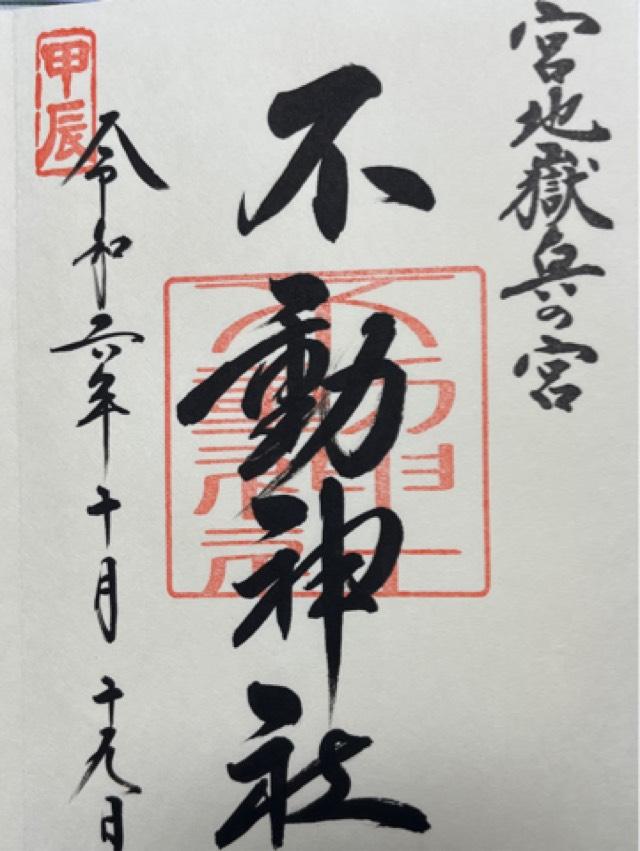 宮地嶽奥の宮
不動神社
不動神社
令和六年十月十九日
甲辰